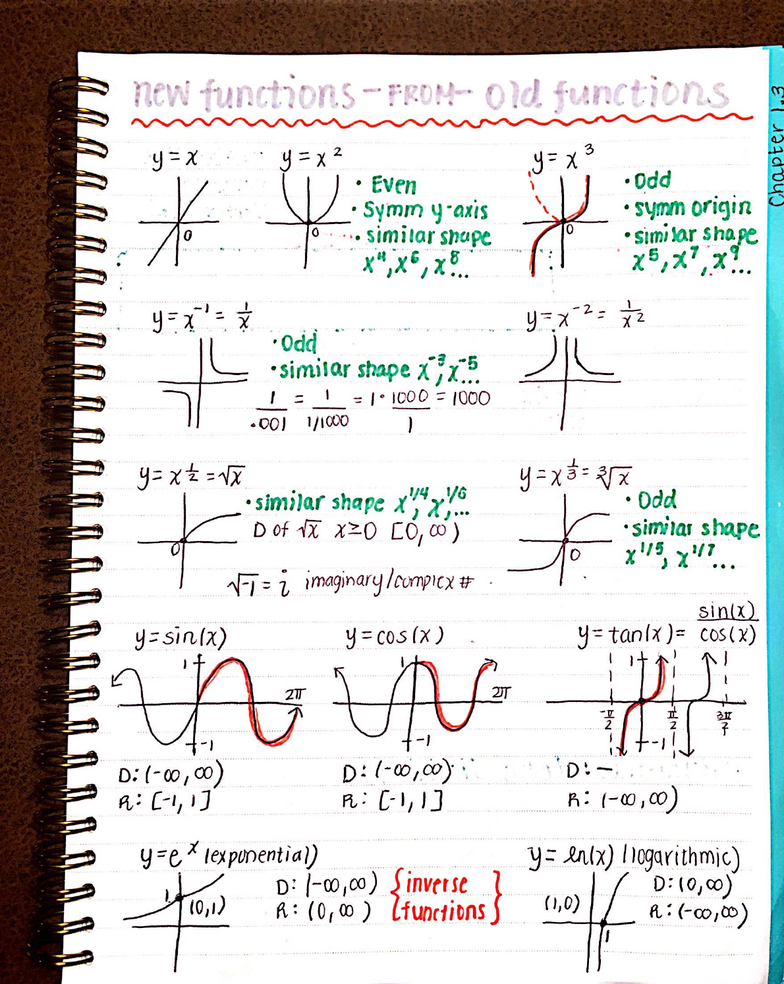 new functions - FROM - old functions
Chapter 1.3
y = x
0
y = x²
0
• Even
• Symm y-axis
• similar shape
x⁴, x⁶, x⁸...
y = x³
0
• Odd
• symm origin
• similar shape
x⁵, x⁷, x⁹...
y = x⁻¹ = 1/x
• Odd
• similar shape x⁻³, x⁻⁵...
1/.001 = 1/1/1000 = 1 • 1000/1 = 1000
y = x⁻² = 1/x²
y = x^1/2 = √x
0
• similar shape x^1/4, x^1/6, ...
D of √x x ≥ 0 [0, ∞)
√-1 = i imaginary/complex #
y = x^1/3 = ∛x
0
• Odd
• similar shape
x^1/5, x^1/7...
y = sin(x)
1
2π
-1
D: (-∞, ∞)
R: [-1, 1]
y = cos(x)
1
2π
-1
D: (-∞, ∞)
R: [-1, 1]
y = tan(x) = sin(x)/cos(x)
1
-π/2
π/2
-1
D: -
R: (-∞, ∞)
y = eˣ (exponential)
1
(0,1)
D: (-∞, ∞)
R: (0, ∞)
{inverse
functions}
y = ln(x) (logarithmic)
(1,0)
1
D: (0, ∞)
R: (-∞, ∞)